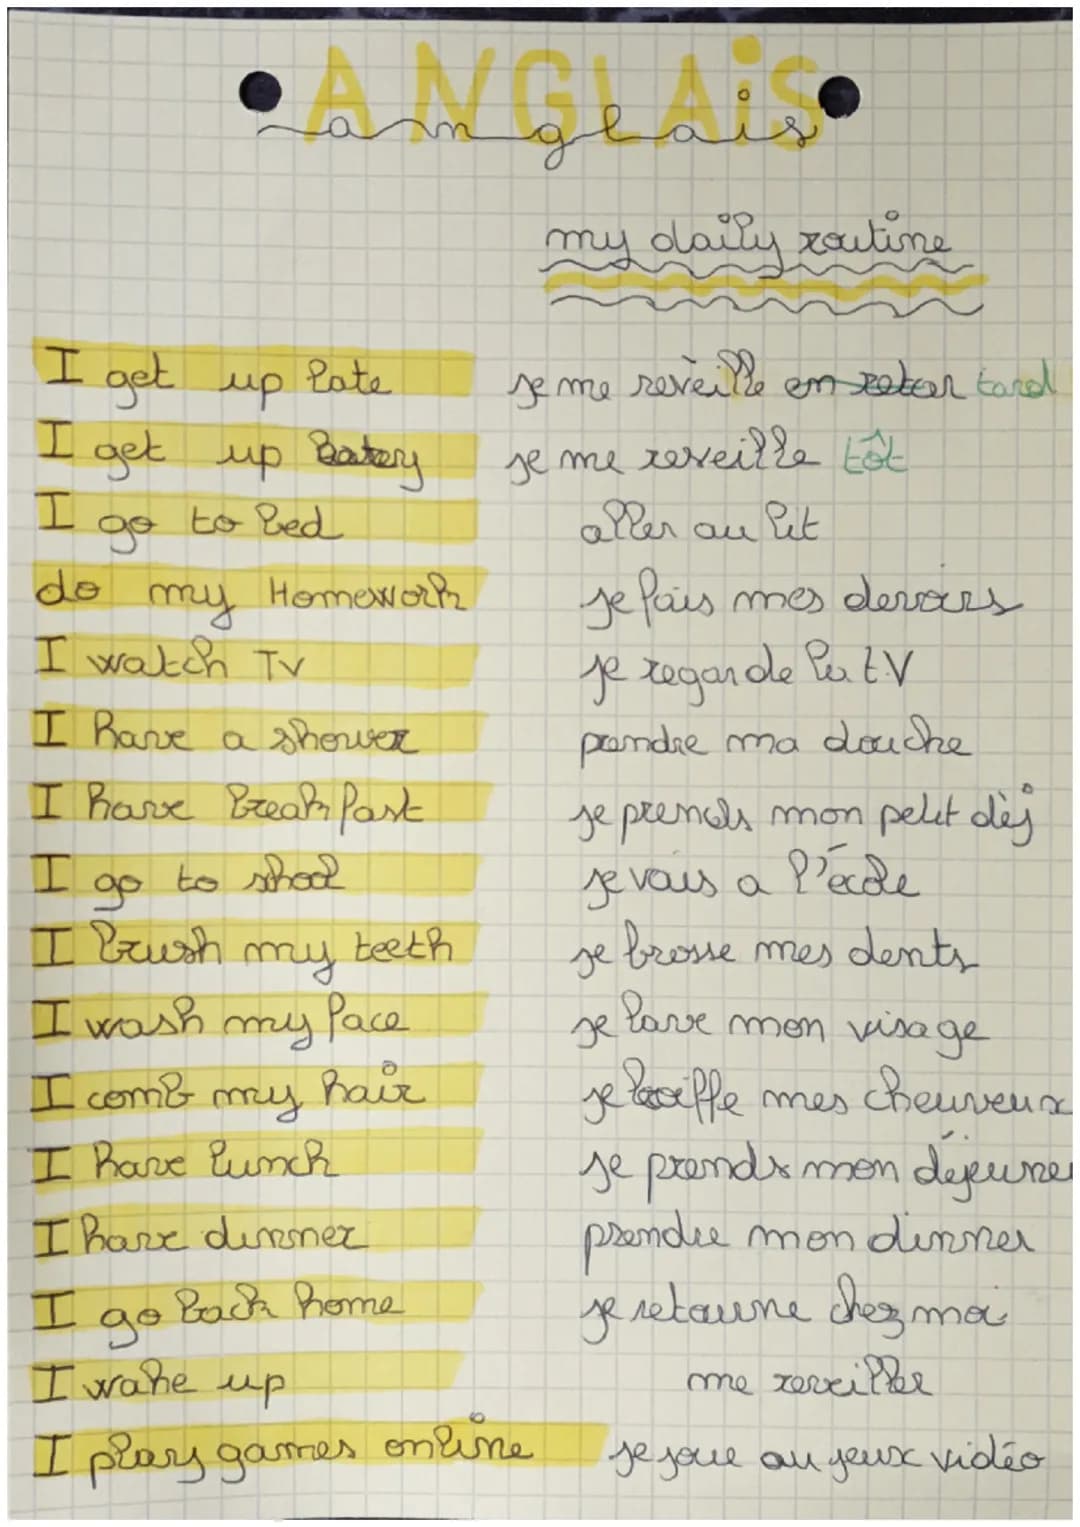 ANGLAiS
anglais
my daily routine
I get up late je me reveille en retar tard
I get up je me reveille tôt
I go to bed aller au lit
do my Homework je fais mes devoirs
I watch TV je regarde la t.V
I have a shower prendre ma douche
I have breakfast je prends mon petit dèj
I go to shool je vais a l'école
I brush my teeth je brosse mes dents
I wash my face je lave mon visage
I comb my hair je coiffe mes cheuveux
I have lunch je prends mon déjeuner
I have dinner prendre mon dinner
I go back home je retourne chez moi
I wake up me reveiller
I play games online je joue au jeux vidéo